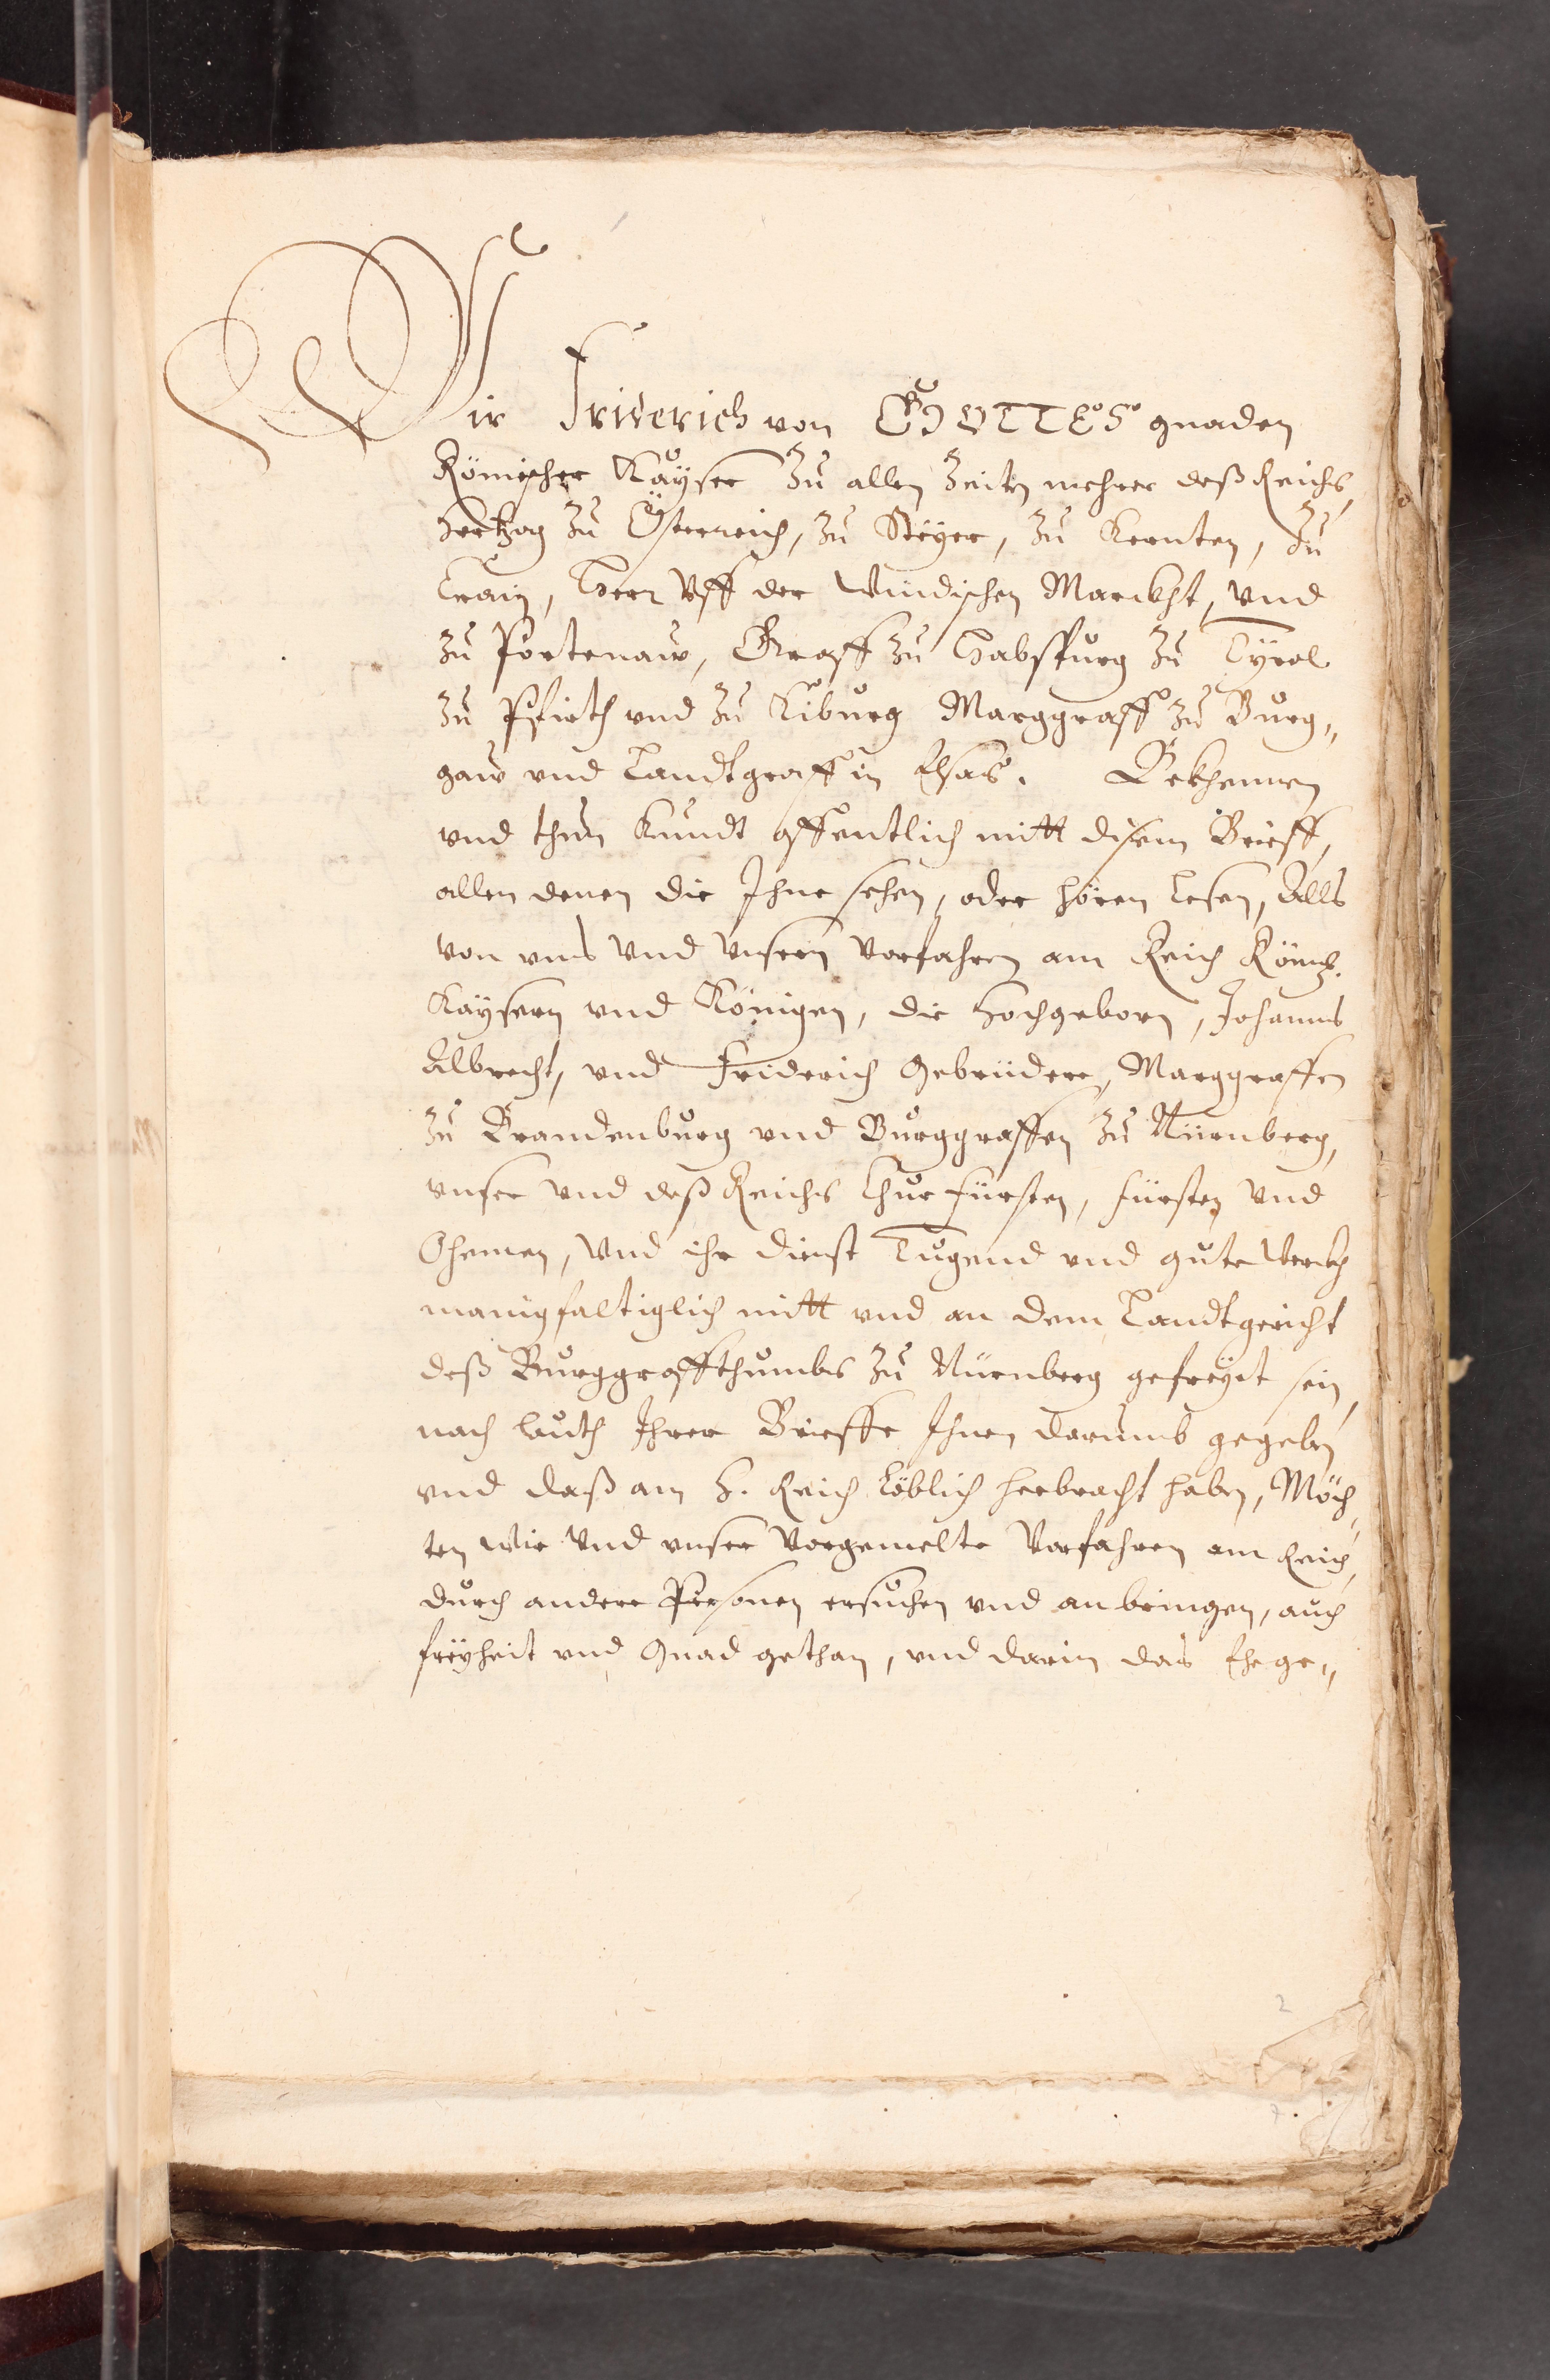 Wir Friderich von GOTTES gnaden
Römischer Kayser zu allen Zeiten mehrer deß Reichs,
Hertzog zu Österreich, zu Steyer, zu Kernten, zu
Crain, Herr Vff der Windischen Marckht, vnd
zu Portenaw, Graff zu Habspurg zu Tyrol
zu Pfirth vnd zu Kiburg Marggraff zu Burg„
gaw vnd Landtgraff in Elsas. Bekhennen
vnd thun kundt offentlich mitt disem Brieff,
allen denen die Ihne sehen, oder hören Lesen, Alls
von vns vnd vnsern Vorfahren am Reich Römb.
Kaysern vnd Königen, die Hochgeborn, Johanns
Albrecht, vnd Friderich Gebrüdere, Marggraffen
zu Brandenburg vnd Burggraffen zu Nürnberg,
vnser vnd deß Reichs Churfürsten, fürsten vnd
Ohemen, vnd ihr dienst Tugend vnd gute Werckh
manigfaltiglich mitt vnd an dem Landtgericht
deß Burggraffthumbs zu Nürnberg gefreyet sein,
nach lauth Ihrer Brieffe Ihnen darumb gegeben
vnd daß am H. Reich Löblich herbracht haben, Möch„
ten Wir vnd vnser Vorgemelte Vorfahren am Reich,
durch andere Personen ersuchen vnd anbringen, auch
freyheit vnd Gnad gethan, vnd darin das Ehege„
2